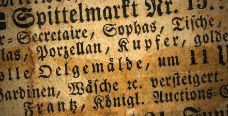 Spittelmarkt Nr. 15.
Secretaire, Sophas, Tische,
las, Porzellan, Kupfer, golde
olle Oelgemälde, um 11 U
Gardinen, Wäsche ꝛc. versteigert.
Frantz, Königl. Auctions-C